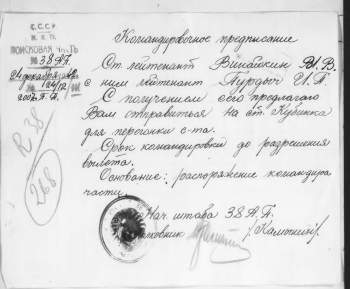 СССР
Н.К.О.
ПОЛЕВАЯ ЧАСТЬ
№ 38 А.П.
24 декабря
№ 124/12
Командировочное предписание
Ст. лейтенант И.В.
с ним лейтенант И.П.
С получением сего предлагаю
Вам отправиться на ст. Кубинка
для перегонки с-та.
Срок командировки до разрешения
вылета.
Основание: распоряжение командира
части.
Нач. штаба 38 А.П.
Полковник /Калошин/
R 88
268